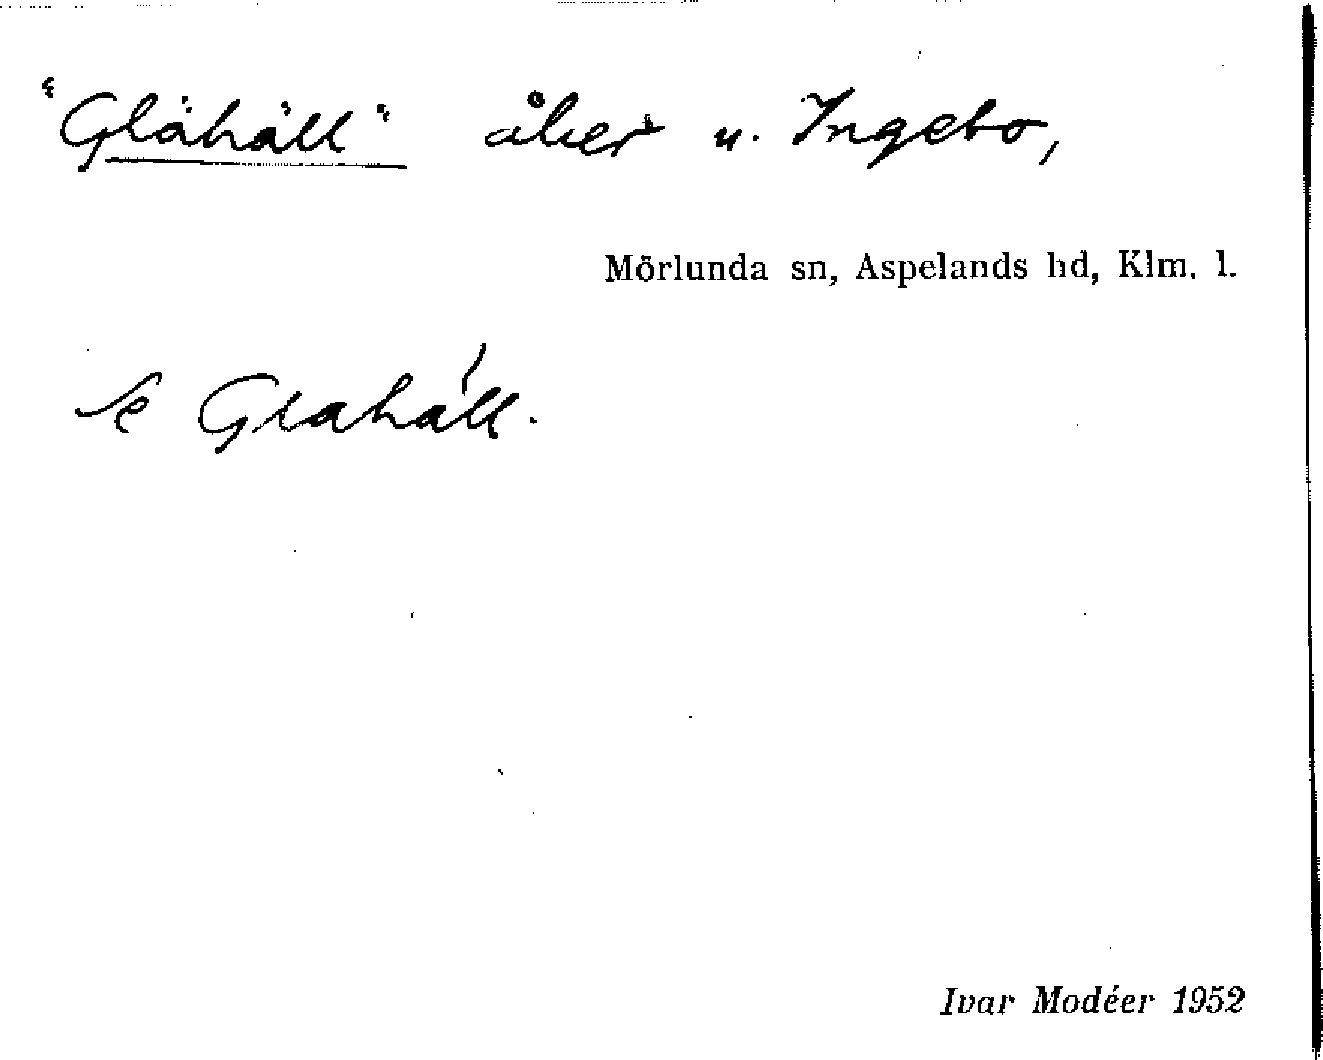 "Glåhäll" åker u. Ingebo,
Mörlunda sn, Aspelands hd, Klm. l.
Se Glahäll.
Ivar Modéer 1952